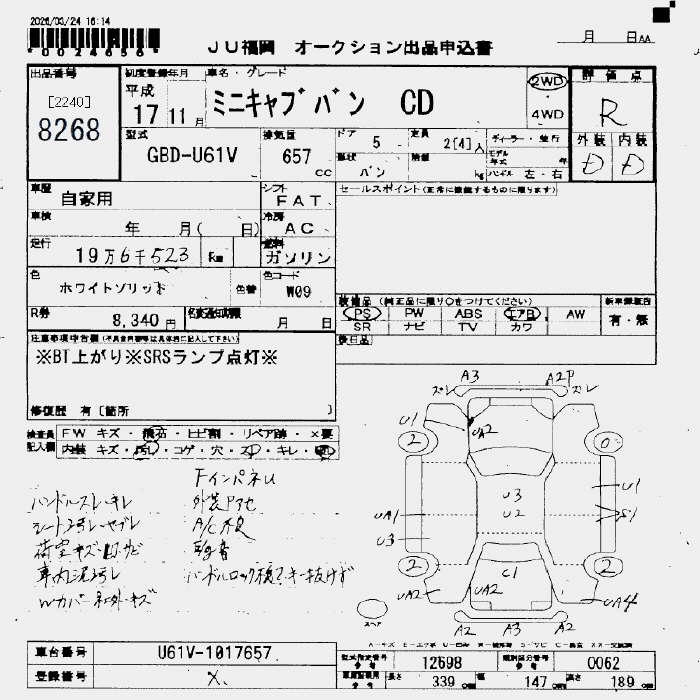 2026/03/24 16:14
*0024656*
JU福岡 オークション出品申込書
月 日AA
出品番号
[2240]
8268
初度登録年月
平成
17 11月
車名・グレード
ミニキャブバン CD
2WD
4WD
評価点
R
外装 内装
D D
型式
GBD-U61V
排気量
657
cc
ドア
5
定員
2[4]人
形状
バン
積載
kg
ディーラー・並行
モデル年式
年
ハンドル 左・右
車歴
自家用
シフト
FAT
車検
年 月( 日)
冷房
AC
走行
19万6千523 Km
燃料
ガソリン
色
ホワイトソリッド
色替
色コード
W09
R券
8,340円
名変通知期限
月 日
セールスポイント(正常に機能するものに限ります)
装備品 (純正品に限り○をつけてください)
PS PW ABS エアB AW
SR ナビ TV カワ
新車保証書
有・無
後日品
注意事項申告欄(不具合箇所等は具体的に記入して下さい)
※BT上がり※SRSランプ点灯※
修復歴 有 [箇所 ]
検査員
記入欄
FW キズ・飛石・ヒビ割・リペア跡・×要
内装 キズ・汚れ・コゲ・穴・
キレ・
FインパネU
ハンドルスレ・キレ
A/C不良
シート汚レ・ヤブレ
荷室キズ・凹・サビ
車内泥汚レ
A3
A2P
ズレ
ズレ
U1
UA2
2
0
U3
U2
U1
S1
UA1
U3
2
2
C1
UA2
UA2
UA4
A2 A3 A2
スペア
車台番号
U61V-1017657
登録番号
X.
型式指定番号
参考
12698
類別区分番号
参考
0062
長さ
339
幅
147
高さ
189